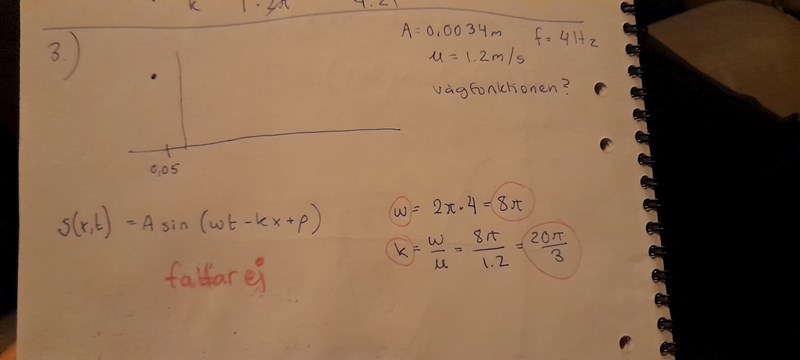 3.)
A = 0,0034m f = 4Hz
u = 1.2m/s
vågfonktionen?
0,05
s(x,t) = A sin (wt - kx + p)
w = 2π·4 = 8π
k = w/u = 8π/1.2 = 20π/3
fattar ej